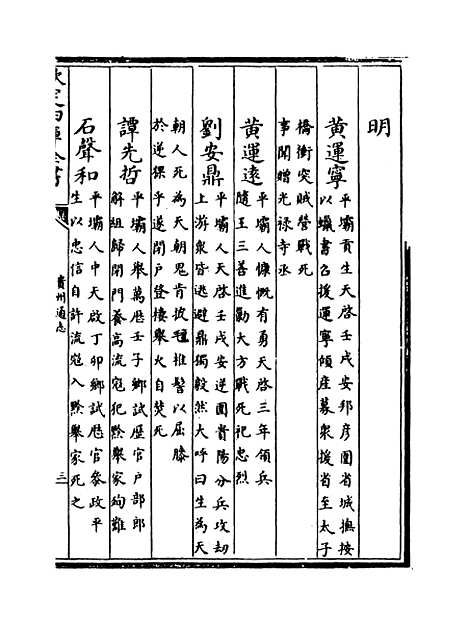 明
黄運寧平壩貢生天啓壬戌安邦彦圍省城撫按
以蠟書召援運寧傾産募衆援省至太子
橋衝突賊營戰死
事聞贈光禄寺丞
黄運逺平壩人慷慨有勇天啓三年領兵
隨王三善進勦大方戰死祀忠烈
劉安鼎平壩人天啓壬戌安逆圍貴陽分兵攻刼
上游衆皆逃避鼎獨毅然大呼曰生為天
朝人死為天朝鬼肯披氊椎髻以屈膝
於逆猓乎遂閉戸登樓舉火自焚死
譚先哲平壩人舉萬厯壬子鄉試歴官户部郎
解組歸閉門養高流寇犯黔舉家殉難
石聲和平壩人中天啟丁卯鄉試厯官叅政平
生以忠信自許流寇入黔舉家死之
欽定四庫全書
貴州通志
三